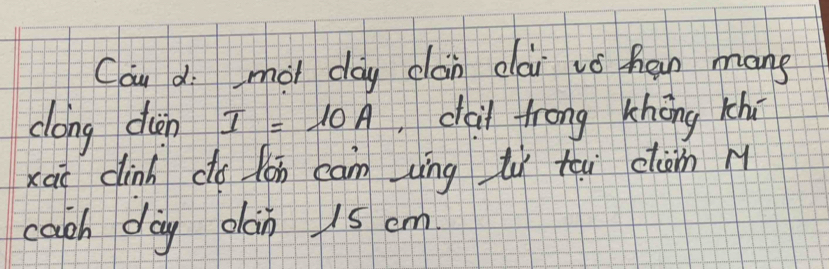 Câu 2: một dây dẫn dài vô hạn mang
dòng điện I = 10A, đặt trong không khí
xác định độ lớn cảm ứng từ tại điểm M
cách dây dẫn 15 cm.